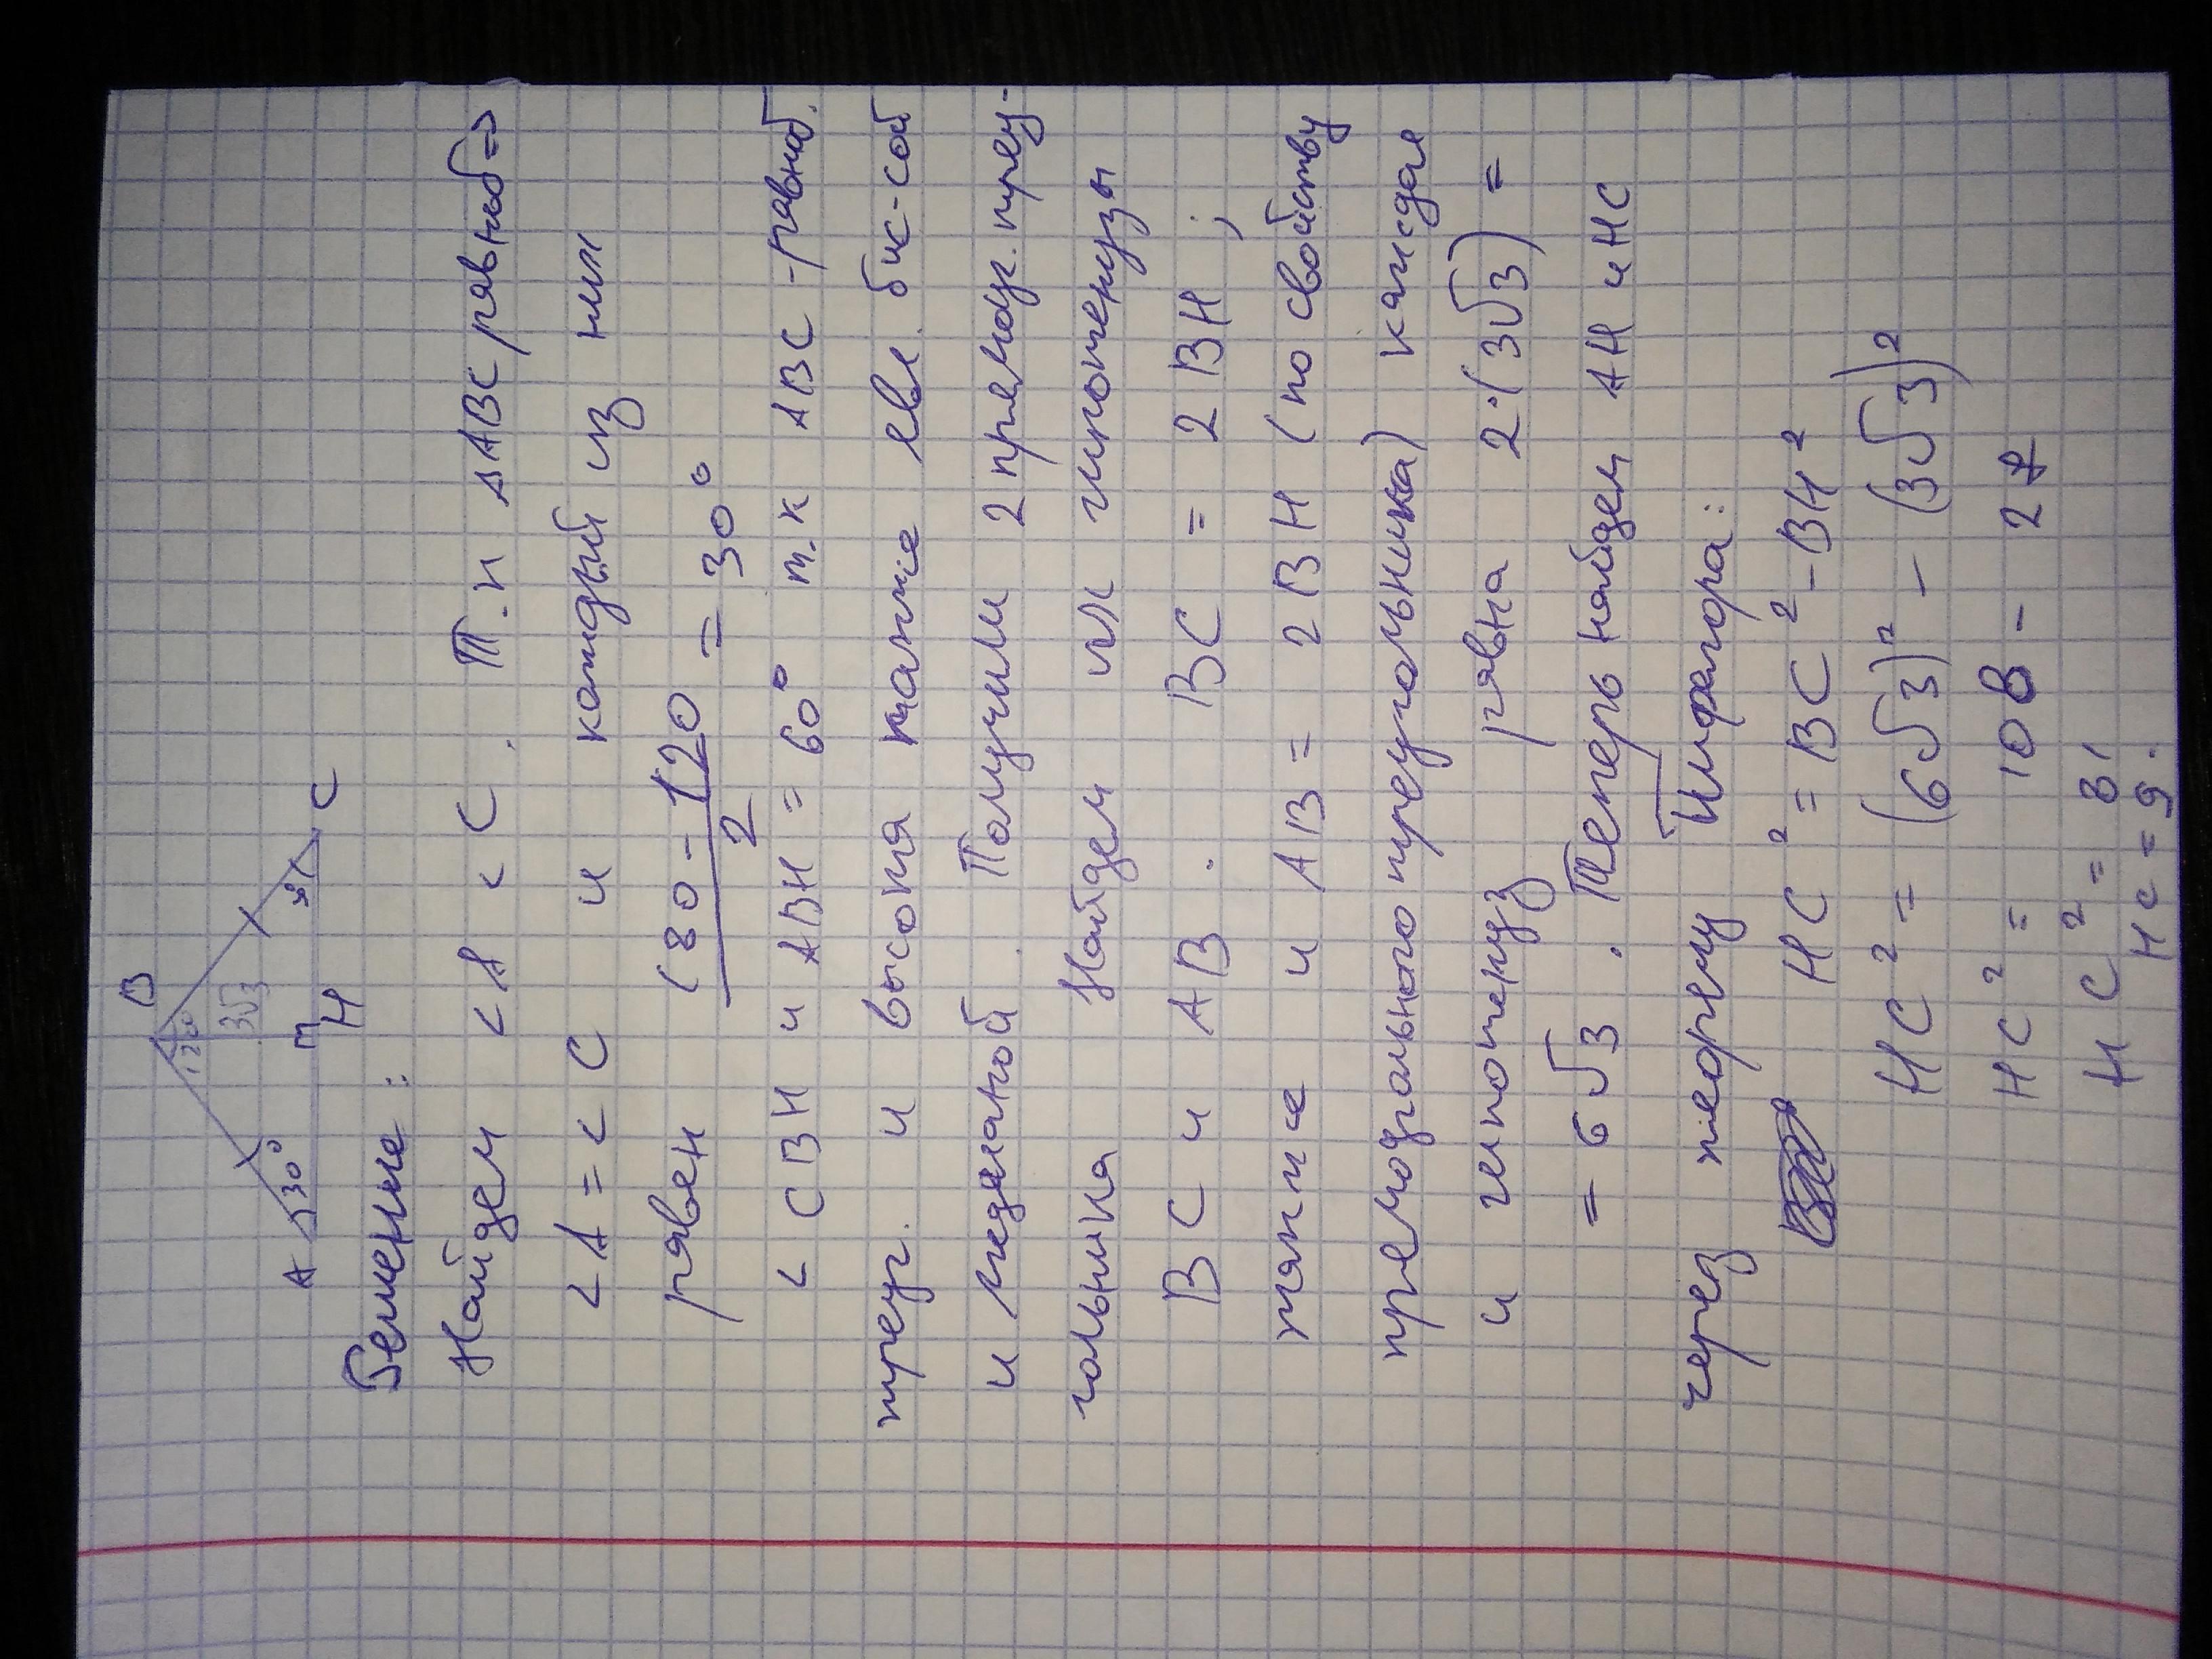 B
120
3√3
A 30° H C
Решение:
Найдем <A <C. Т.к ΔABC равноб =>
<A = <C и каждый из них
равен (80-120 / 2 = 30°
<CBH и ABH = 60° т.к ABC - равноб.
треуг. и высота также явл. бис-сой
и медианой. Получим 2 прямоуг. треу-
гольника Найдем их гипотенузы
BC и AB. BC = 2BH;
также и AB = 2BH (по свойству
прямоугольного треугольника) каждая
и гипотенуз равна 2·(3√3) =
= 6√3. Теперь найдем AH и HC
через теорему Пифагора:
HC² = BC² - BH²
HC² = (6√3)² - (3√3)²
HC² = 108 - 27
HC² = 81
HC = 9.